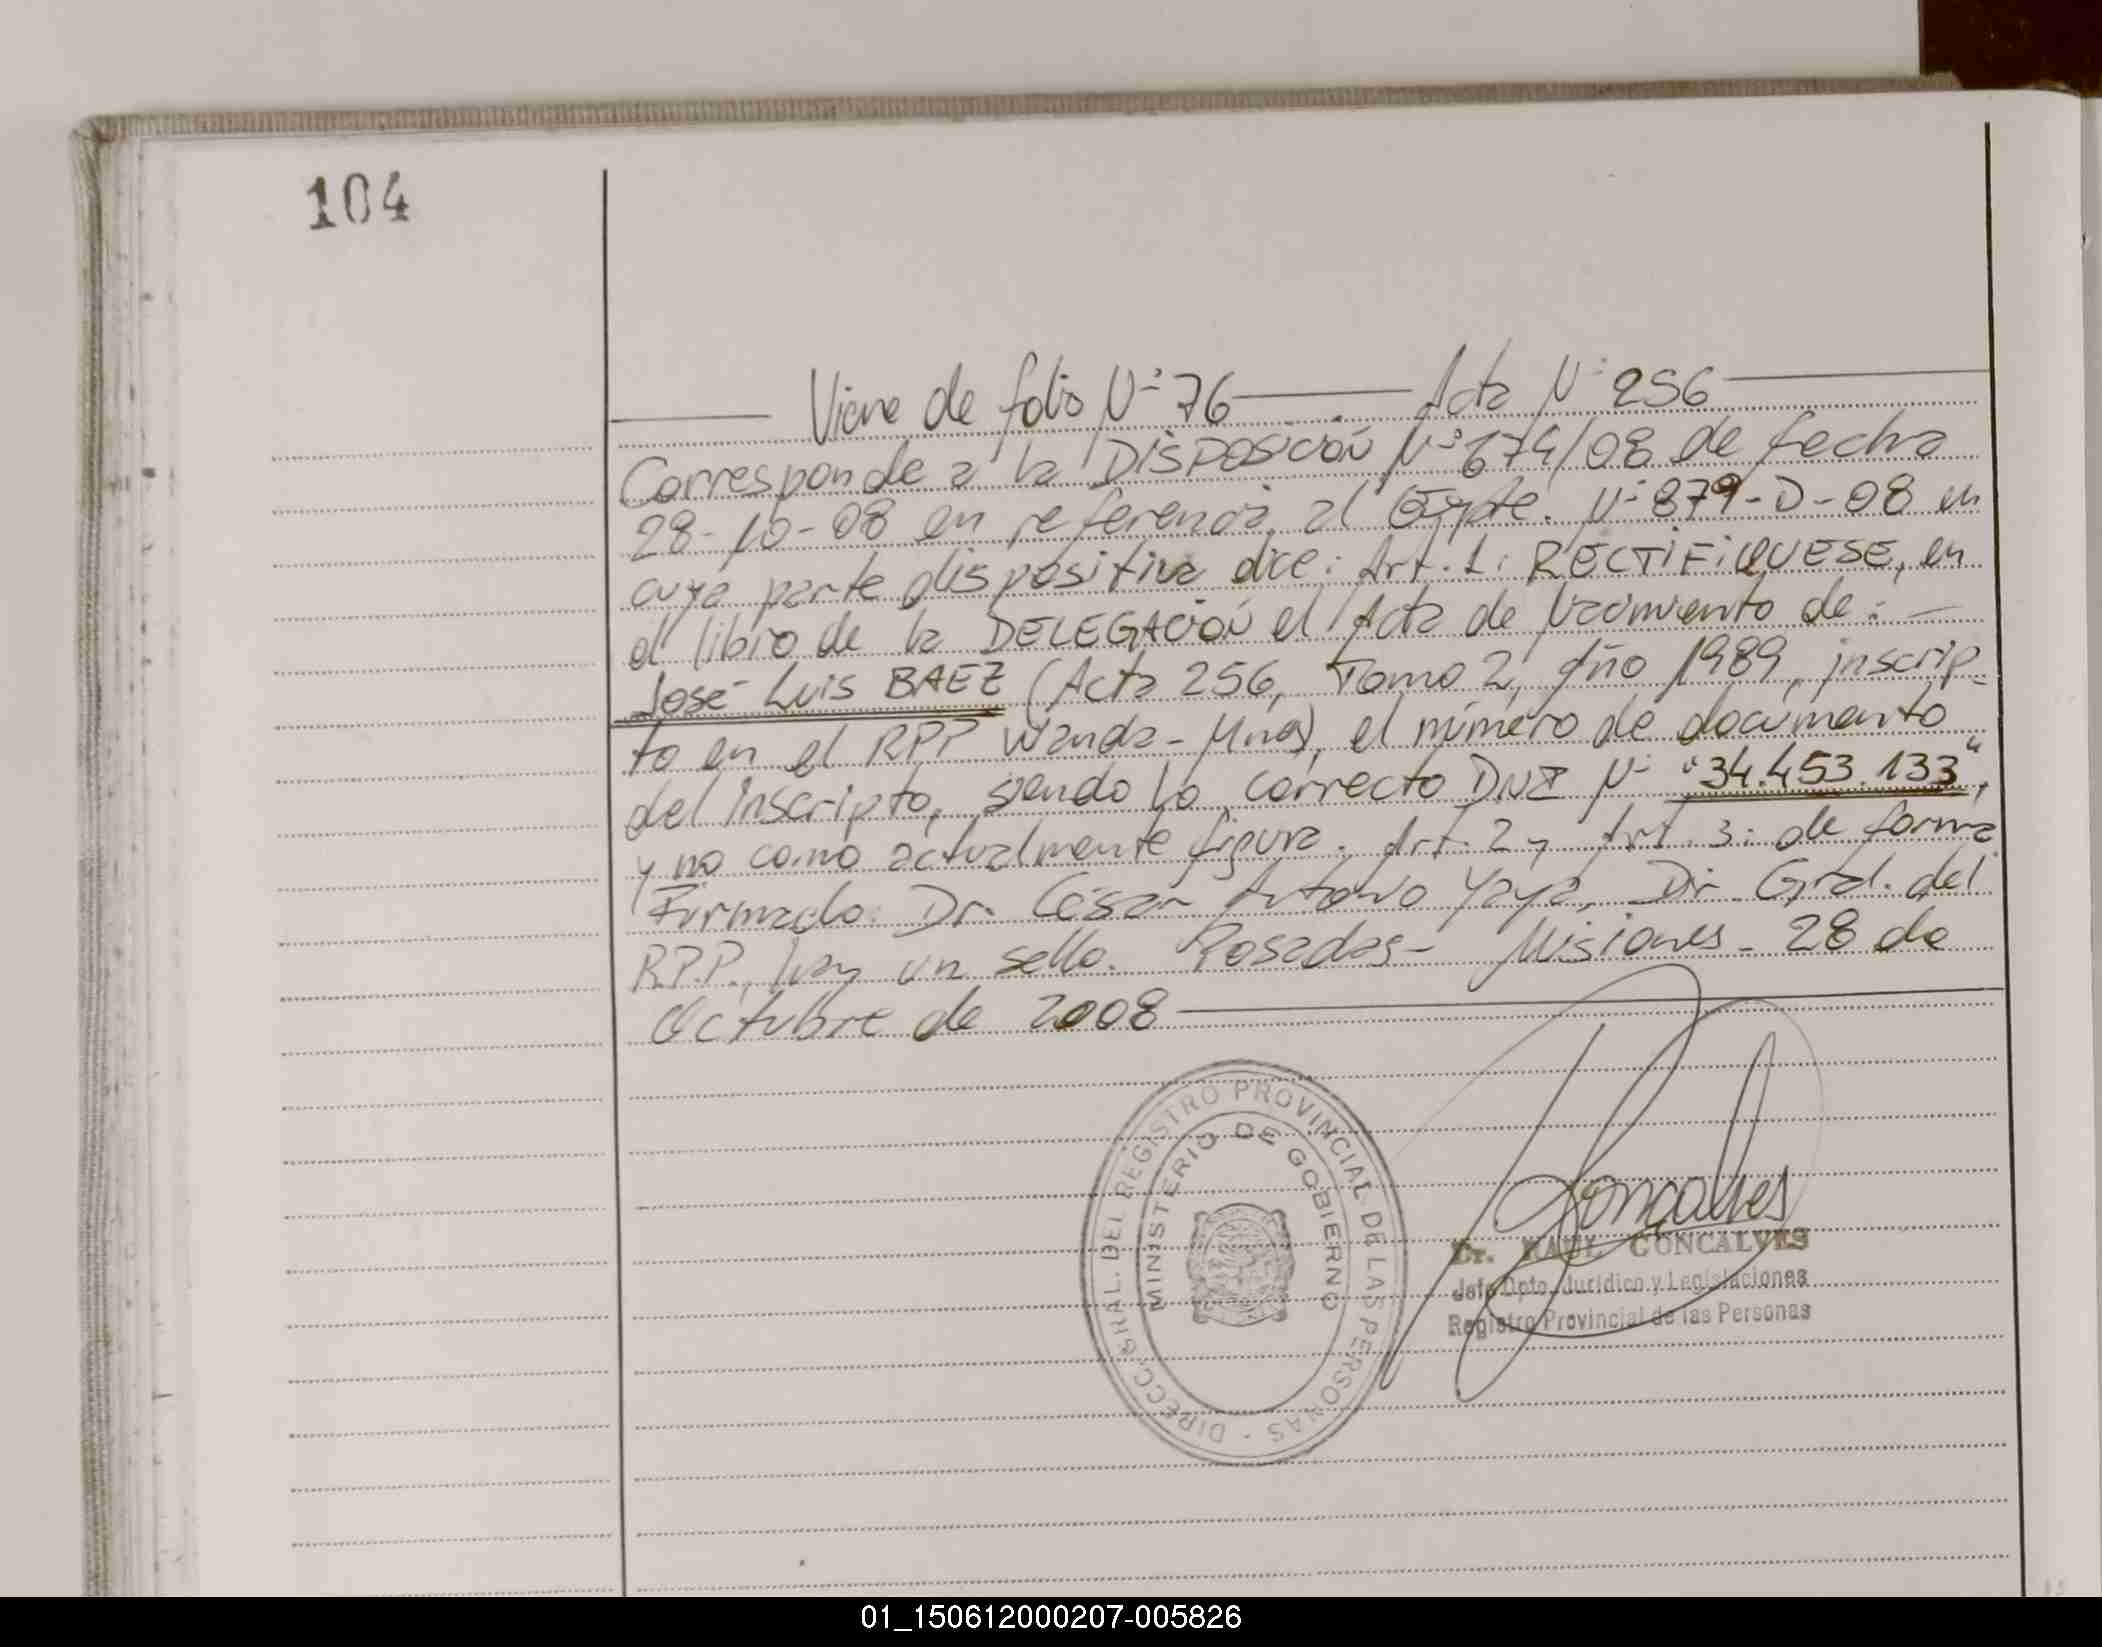 104
Viene de folio Nº 76 — Acta Nº 256
Corresponde a la DISPOSICIÓN Nº 674/08 de fecha
28-10-08 en referencia al Expte. Nº 879-D-08 en
cuya parte dispositiva dice: Art. 1: RECTIFIQUESE, en
el libro de la DELEGACIÓN el Acta de Nacimiento de: —
José Luis BAEZ (Acta 256, Tomo 2, Año 1989, inscrip-
to en el RPP Wanda - Mnes), el número de documento
del inscripto, siendo lo correcto DNI Nº "34.453.133",
y no como actualmente figura. Art. 2 y Art. 3: de forma
Firmado: Dr. César Antonio Yaya, Dir. Gral. del
R.P.P., hay un sello. Posadas - Misiones - 28 de
Octubre de 2008
DIRECC. GRAL. DEL REGISTRO PROVINCIAL DE LAS PERSONAS -
MINISTERIO DE GOBIERNO
Goncalves
Dr. RAUL GONCALVES
Jefe Dpto. Jurídico y Legislaciones
Registro Provincial de las Personas
01_150612000207-005826